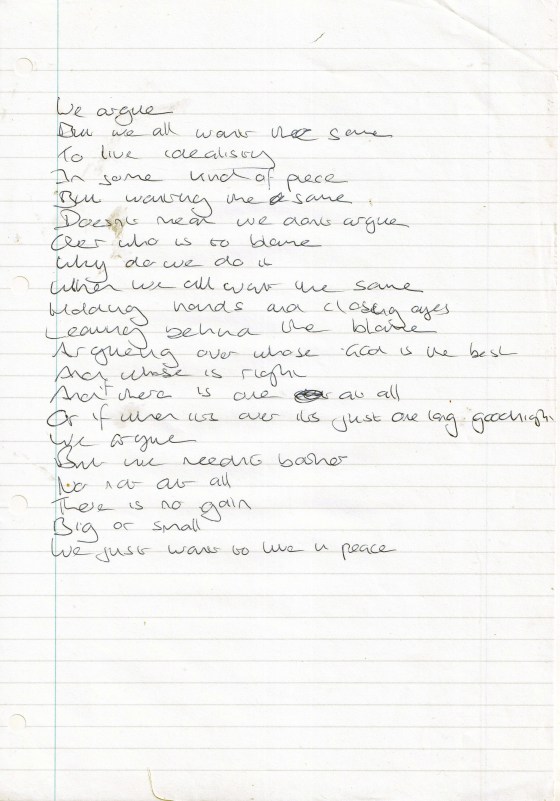 We argue
But we all want the same
To live idealisticly
In some kind of piece
But wanting the same
Doesnt mean we dont argue
Over who is to blame
Why do we do it
When we all want the same
Holding hands and closing eyes
Leaving behind the blame
Argueing over whose God is the best
And whose is right
And if there is one at all
Or if when its over its just one long goodnight
We argue
But we neednt bother
No not at all
There is no gain
Big or small
We just want to live in peace